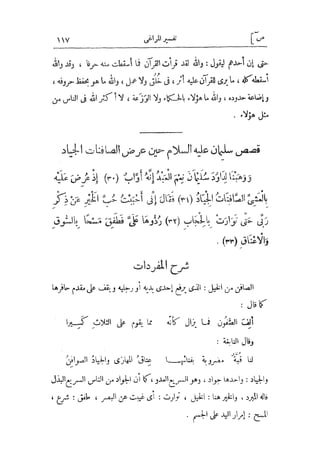 ص ] تفسير المراغى ١١٧
حتى إن أحدهم ليقول : والله لقد قرأت القرآن فما أسقطت منه حرفا ، وقد والله
أسقطه كله ، ما يرى للقرآن عليه أثر ، فى خُلُق ولا عمل ، والله ما هو بحفظ حروفه ،
وإضاعة حدوده ، والله ما هؤلاء بالحكماء ولا الوَزَعة ، لا أكثر الله فى الناس من
مثل هؤلاء .
قصص سليمان عليه السلام حين عرض الصافنات الجياد
وَوَهَبْنَا لِدَاوُدَ سُلَيْمَانَ نِعْمَ الْعَبْدُ إِنَّهُ أَوَّابٌ (٣٠) إِذْ عُرِضَ عَلَيْهِ
بِالْعَشِىِّ الصَّافِنَاتُ الْجِيَادُ (٣١) فَقَالَ إِنِّى أَحْبَبْتُ حُبَّ الْخَيْرِ عَنْ ذِكْرِ
رَبِّى حَتَّى تَوَارَتْ بِالْحِجَابِ (٣٢) رُدُّوهَا عَلَىَّ فَطَفِقَ مَسْحًا بِالسُّوقِ
وَالْأَعْنَاقِ (٣٣) .
شرح المفردات
الصافن من الخيل : الذى يرفع إحدى يديه أو رجليه ويقف على مقدم حافرها
كما قال :
ألِفَ الصُّفُون فما يزال كأنّه مما يقوم على الثلاث كَسِيرا
وقال النابغة :
لنا قُبّة مضروبة بفنائها عِتاقُ المهارَى والجيادُ الصوافنُ
والجياد : واحدها جواد ، وهو السريع العدو ، كما أن الجواد من الناس السريع البذل
قاله المبرد ، والخير هنا : الخيل ، توارت : أى غيبت عن البصر ، طفق : شرع ،
المسح : إمرار اليد على الجسم .